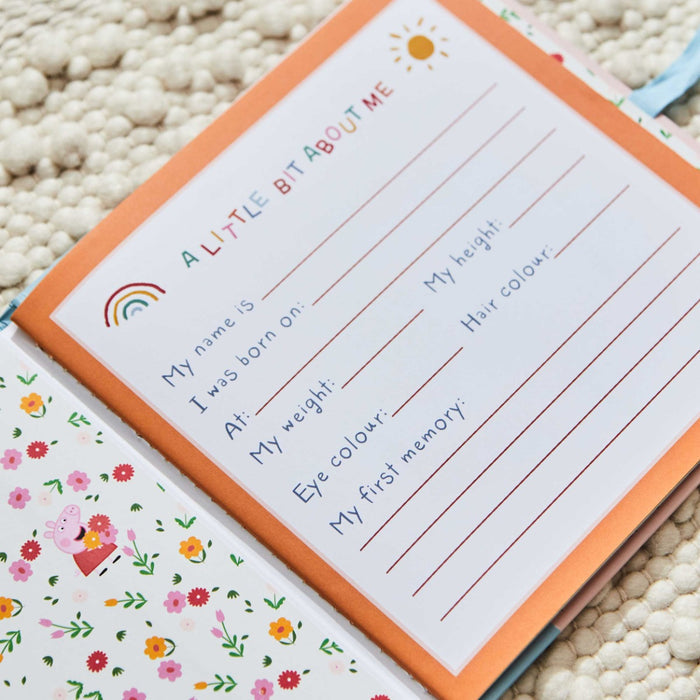 A LITTLE BIT ABOUT ME
My name is
I was born on:
At:
My weight: My height:
Eye colour: Hair colour:
My first memory: